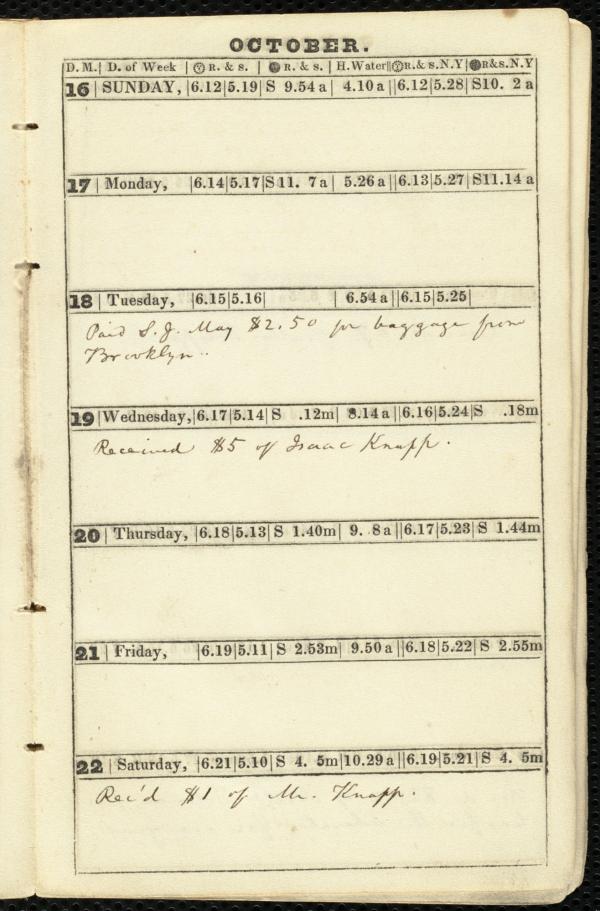 OCTOBER.
D. M. | D. of Week | R. & s. | R. & s. | H. Water || R. & s. N.Y | R&s. N.Y
16 | SUNDAY, | 6.12 | 5.19 | S 9.54 a | 4.10 a || 6.12 | 5.28 | S10. 2 a
17 | Monday, | 6.14 | 5.17 | S 11. 7 a | 5.26 a || 6.13 | 5.27 | S11.14 a
18 | Tuesday, | 6.15 | 5.16 | | 6.54 a || 6.15 | 5.25 |
Paid S. J. May $2.50 for baggage from
Brooklyn..
19 | Wednesday, | 6.17 | 5.14 | S .12m | 8.14 a || 6.16 | 5.24 | S .18m
Received $5 of Isaac Knapp.
20 | Thursday, | 6.18 | 5.13 | S 1.40m | 9. 8 a || 6.17 | 5.23 | S 1.44m
21 | Friday, | 6.19 | 5.11 | S 2.53m | 9.50 a || 6.18 | 5.22 | S 2.55m
22 | Saturday, | 6.21 | 5.10 | S 4. 5m | 10.29 a || 6.19 | 5.21 | S 4. 5m
Rec'd $1 of Mr. Knapp.